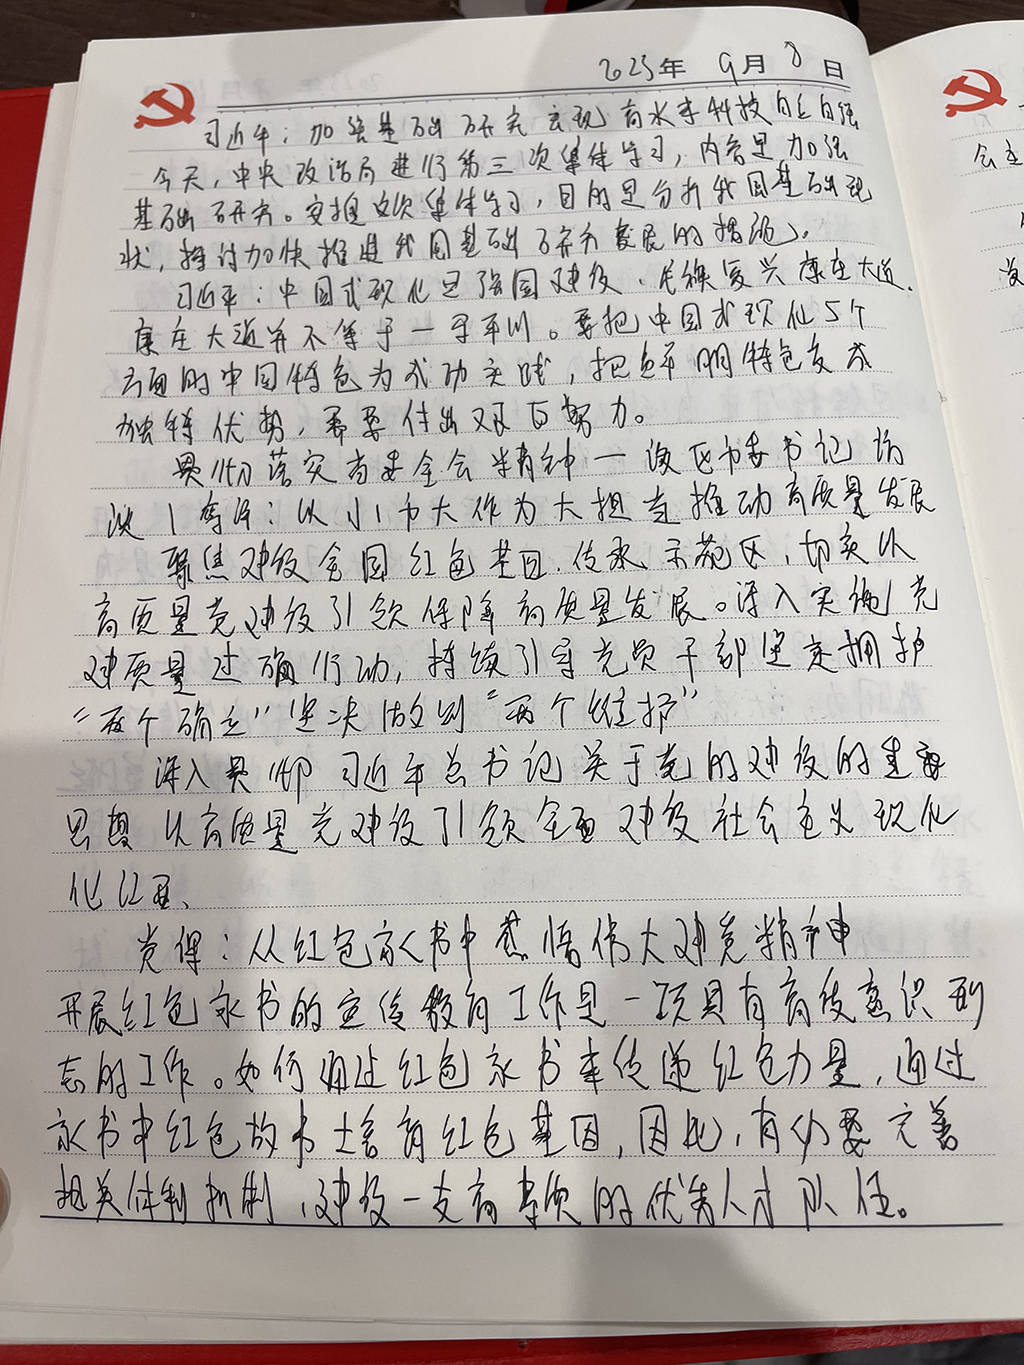 2023年 9月 8日
习近平：加强基础研究 实现高水平科技自立自强
今天，中央政治局进行第三次集体学习，内容是加强
基础研究。安排这次集体学习，目的是分析我国基础现
状，探讨加快推进我国基础研究发展的措施。
习近平：中国式现代化是强国建设、民族复兴康庄大道.
康庄大道并不等于一马平川。要把中国式现代化5个
方面的中国特色为成功实践，把鲜明特色变成
独特优势，需要付出艰巨努力。
贯彻落实省委全会精神一 区市委书记访
谈 ：以小巾大作为大担当推动高质量发展
聚焦建设全国红色基因.传承.示范区，切实以
高质量党建设引领保障高质量发展。深入实施党
建质量过硬行动，持续引导党员干部坚定拥护
“两个确立”坚决做到“两个维护”
深入贯彻习近平总书记关于党的建设的重要
思想 以高质量党建设引领全面建设社会主义现代
化江西、
党课：从红色家书中感悟伟大建党精神
开展红色家书的宣传教育工作是一项具有高度意识形
态的工作。如何通过红色家书来传递红色力量，通过
家书中红色故事培育红色基因，因此，有必要完善
相关体制机制，建设一支高素质的优秀人才队伍。
会主